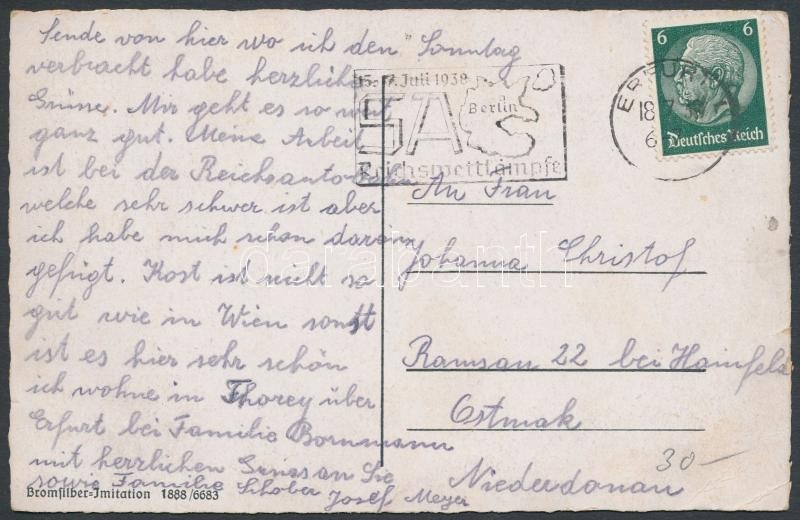 Sende von hier wo ich den Sonntag
verbracht habe herzliche
Grüsse. Mir geht es so weit
ganz gut. Meine Arbeit
ist bei der Reichsautobahn
welche sehr schwer ist aber
ich habe mich schon daran
gefügt. Kost ist nicht so
gut wie in Wien sonst
ist es hier sehr schön
ich wohne in Thorey über
Erfurt bei Familie Bornmann
mit herzlichen Grüss an Sie
sowie Familie Schober Josef Meyer
Bromsilber-Imitation 1888/6683
15.-17. Juli 1938
SA
Berlin
Reichswettkämpfe
ERFURT
18
6
6 6
Deutsches Reich
An Frau
Johanna Christof
Ramsau 22 bei Hainfeld
Ostmak
Niederdonau
30-
darabanth